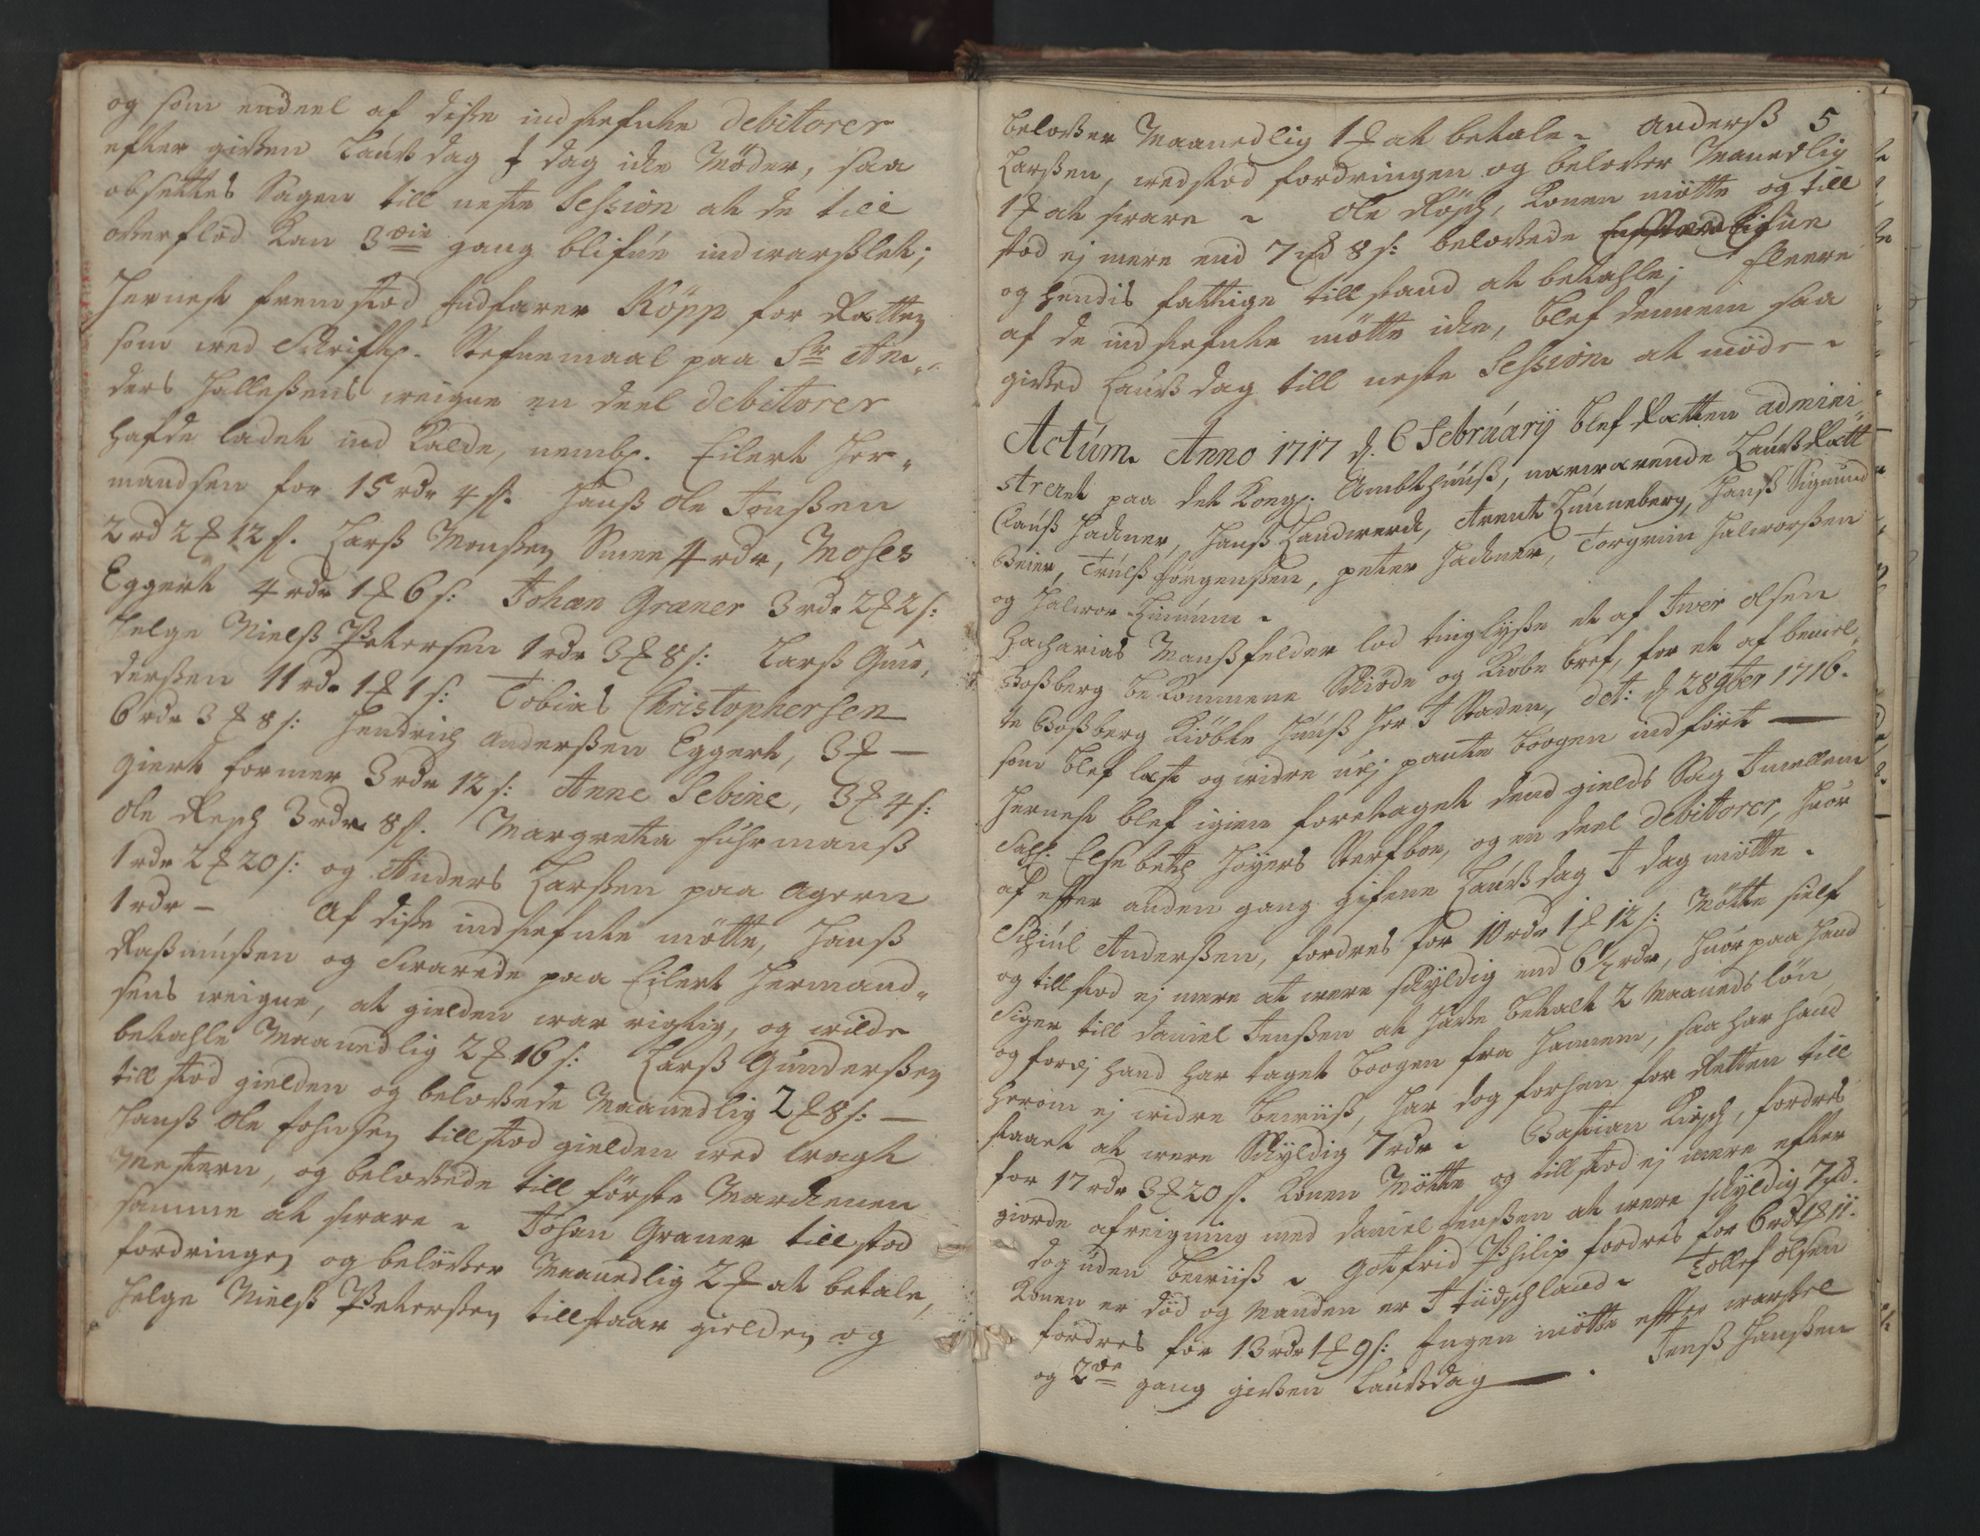 og som endeel af disse indstefnte debitorer
efter gifven Laufdag J dag icke Möder, saa
obsettes Sagen till neste Session at de till
ofverflöd kan 3die gang blifúe indvarsslet;
Hernest fremstod Indfarer Röpp for Retten
som med Schriftl. Stefnemaal paa Sr An„
ders Hallessens weigne en deel debitorer
hafde ladet ind Kalde, nembl. Eilert Her„
mandsen for 15 rdr 4 s. Hanss Ole Jonssen
2 rd 2 ₰ 12 s. Larss Monssen Smen 4 rdr, Moses
Eggert 4 rdr 1 ₰ 6 s: Johan Graner 3 rdr 2 ₰ 2 s:
Helge Nielss Petersen 1 rdr 3 ₰ 8 s: Larss Gún„
derssen 11 rdr 1 ₰ 1 s: Tobias Christophersen
6 rdr 3 ₰ 8 s: Hendrich Anderssen Eggert, 3 ₰ —
Giert former 3 rdr 12 s: Anne Sebine, 3 ₰ 4 s:
Ole Resch 3 rdr 8 s. Margreta Fúhrmanss
1 rdr 2 ₰ 20 s: og Anders Larssen paa Agern
1 rdr — Af disse indstefnte mötte, Hanss
Rassmússen og Svarede paa Eilert Hermand„
sens weigne, at gielden war rigtig, og wilde
betahle Maanedlig 2 ₰ 16 s: Larss Gúnderssen
till stod gielden og belofvede Maanedlig 2 ₰ 8 s: —
Hanss Ole Johnsen tillstod gielden med
Mestern, og belofvede till förste Marckenen
samme at svare. Johan Graner till stod
fordringen og belöfver Maanedlig 2 ₰ at betale,
Helge Nielss Peterssen tillstaar gielden og
5
belofver Maanedlig 1 ₰ at betale. Anderss
Larssen, wedstod fordringen og belofver Manedlig
1 ₰ at svare. Ole Rösch, konen mötte og till
stod ej mere end 7 rd 8 s: belofvede
og hendis fattige tillstand at betahle; fleere
af de indstefnte mötte icke, blef dennem saa
gifved Laufdag till neste Session at möde.
Actúm. Anno 1717 d. 6 Februúarij blef Retten admini„
streret paa det Kongl. Ambthúuss, nærwærende Laússrett
Clauss Hackner, Hanss Landwerck, Arent Lúnneberg, Hanss Sigmund
Beier, Trúlss Jörgenssen, peter Hackner, Torgrim Halworssen
og Halwor
Zacharias Mansfelder lod tinglysse et af Iver Olsen
Bossberg bekommene Schiöde og Kiöbe bref, for et af bemel„
te Bossberg Kiöbte Húuss her J Staden, dat: d. 28 9ber 1716.
som blef læst og widre udj pante boogen indfört —
Hernest blef igien foretaget dend gields Sag Jmellem
Sal. Elsebeth Höyers Sterfboe, og en deel debitorer, huor
af effter anden gang gifvene Laufdag J dag mötte.
Schiúl Anderssen, fordres for 10 rdr 1 ₰ 12 s: Mötte sielf
og tillstod ej mere at were schyldig end 6½ rdr, huor paa hand
Siger till Daniel Jenssen at hafve betalt 2 Maaneds lön,
og fordj hand har taget boogen fra hannem, saa har hand
herom ej widre bewiiss, har dog forhen for Retten till
staaet at were Schyldig 7 rdr. Bastian Riesch, fordres
for 17 rdr 3 ₰ 20 s. konen Mötte og tillstod ej mere efter
giorde afreigning med Daniel Jenssen at were schyldig 7 rd.
dog úden bewiiss. Gotfrid Philip fordres for 6 rd 1 ₰ 11.
Konen er död og Manden er J tüdschland. Tollef Olsen
fordres for 13 rdr 1 ₰ 9 s: Ingen mötte effter warsel
og 2de gang gifven Laufdag — . Jenss Hanssen